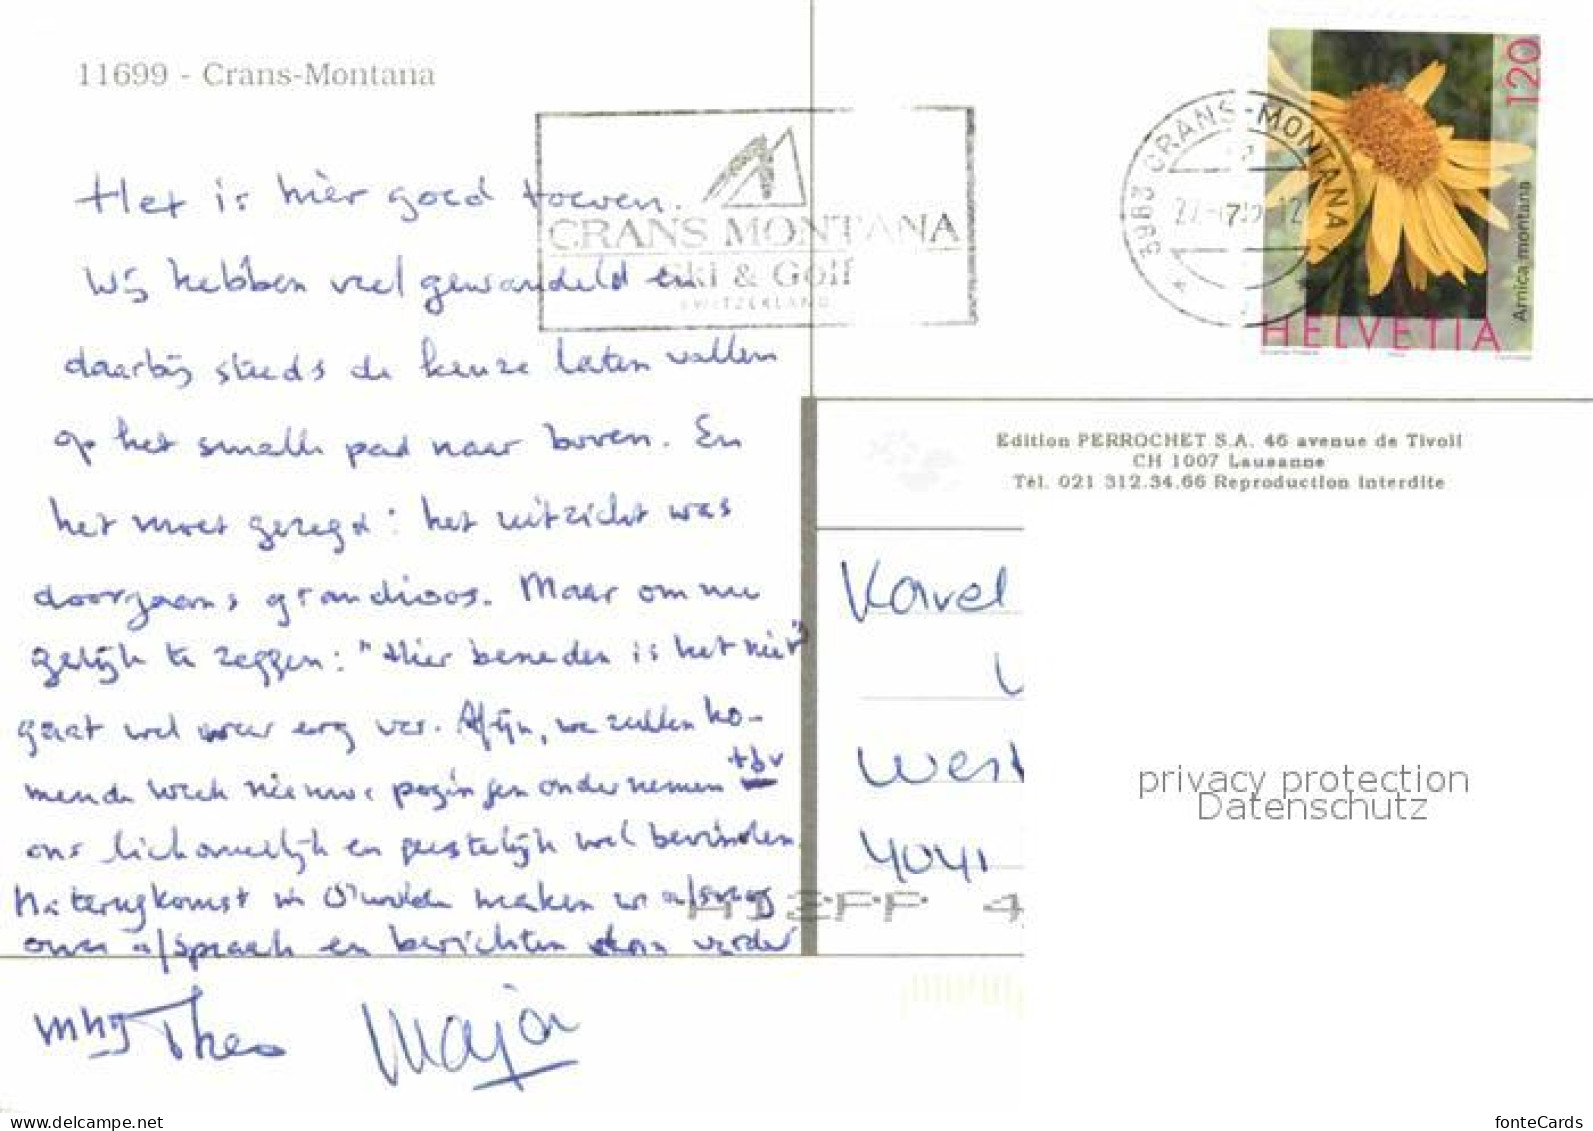 11699 - Crans-Montana
CRANS MONTANA
Ski & Golf
SWITZERLAND
3963 CRANS-MONTANA
120
Arnica montana
HELVETIA
Het is hier goed toeven.
Wij hebben veel gewandeld en
daarbij steeds de keuze laten vallen
op het smalle pad naar boven. En
het moet gezegd: het uitzicht was
doorgaans grandioos. Maar om nu
gelijk te zeggen: "Hier beneden is het niet"
gaat wel weer erg ver. Afijn, we zullen ko-
mende week nieuwe pogingen ondernemen tbv
ons lichamelijk en geestelijk welbevinden.
Na terugkomst in maken we afspraak
over afspraak en berichten verder
mhg Theo Marjon
Edition PERROCHET S.A. 46 avenue de Tivoli
CH 1007 Lausanne
Tél. 021 312.34.66 Reproduction interdite
Karel
West
4041
privacy protection
Datenschutz
www.delcampe.net
fonteCards